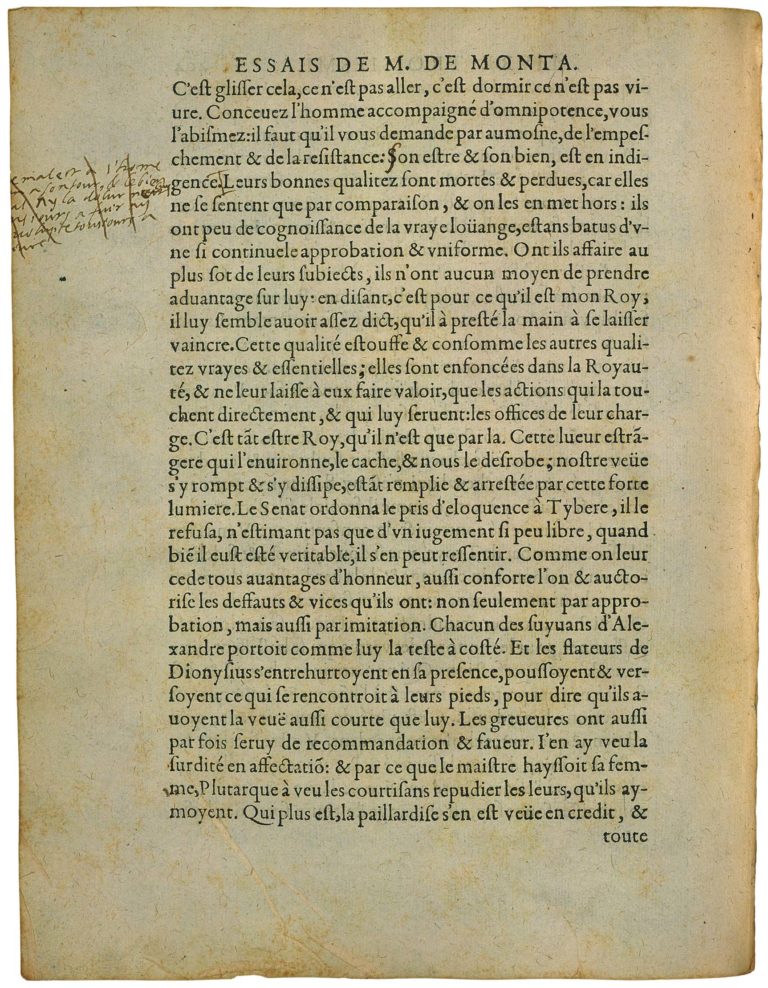 ESSAIS DE M. DE MONTA.
C'eſt gliſſer cela,ce n'eſt pas aller, c'eſt dormir ce n'eſt pas vi-
ure. Conceuez l'homme accompaigné d'omnipotence, vous
l'abiſmez:il faut qu'il vous demande par aumoſne,de l'empeſ-
chement & de la reſiſtance: Son eſtre & ſon bien, eſt en indi-
gence. Leurs bonnes qualitez ſont mortes & perdues, car elles
ne ſe ſentent que par comparaiſon, & on les en met hors: ils
ont peu de cognoiſſance de la vraye loüange,eſtans batus d'v-
ne ſi continuele approbation & vniforme. Ont ils affaire au
plus ſot de leurs ſubiects, ils n'ont aucun moyen de prendre
aduantage ſur luy: en diſant,c'eſt pour ce qu'il eſt mon Roy,
il luy ſemble auoir aſſez dict,qu'il à preſté la main à ſe laiſſer
vaincre.Cette qualité eſtouffe & conſomme les autres quali-
tez vrayes & eſſentielles; elles ſont enfoncées dans la Royau-
té, & ne leur laiſſe à eux faire valoir,que les actions qui la tou-
chent directement, & qui luy ſeruent:les offices de leur char-
ge.C'eſt tãt eſtre Roy,qu'il n'eſt que par la. Cette lueur eſtrã-
gere qui l'enuironne,le cache,& nous le deſrobe; noſtre veüe
s'y rompt & s'y diſſipe,eſtãt remplie & arreſtée par cette forte
lumiere.Le Senat ordonna le pris d'eloquence à Tybere, il le
refuſa, n'eſtimant pas que d'vn iugement ſi peu libre, quand
biẽ il euſt eſté veritable,il s'en peut reſſentir. Comme on leur
cede tous auantages d'honneur, auſſi conforte l'on & aucto-
riſe les deffauts & vices qu'ils ont: non ſeulement par appro-
bation, mais auſſi par imitation. Chacun des ſuyuans d'Ale-
xandre portoit comme luy la teſte à coſté. Et les flateurs de
Dionyſius s'entrehurtoyent en ſa preſence,pouſſoyent & ver-
ſoyent ce qui ſe rencontroit à leurs pieds, pour dire qu'ils a-
uoyent la veuë auſſi courte que luy. Les greueures ont auſſi
par fois ſeruy de recommandation & faueur. I'en ay veu la
ſurdité en affectatiõ: & par ce que le maiſtre hayſſoit ſa fem-
me,Plutarque à veu les courtiſans repudier les leurs,qu'ils ay-
moyent. Qui plus eſt,la paillardiſe s'en eſt veüe en credit, &
toute